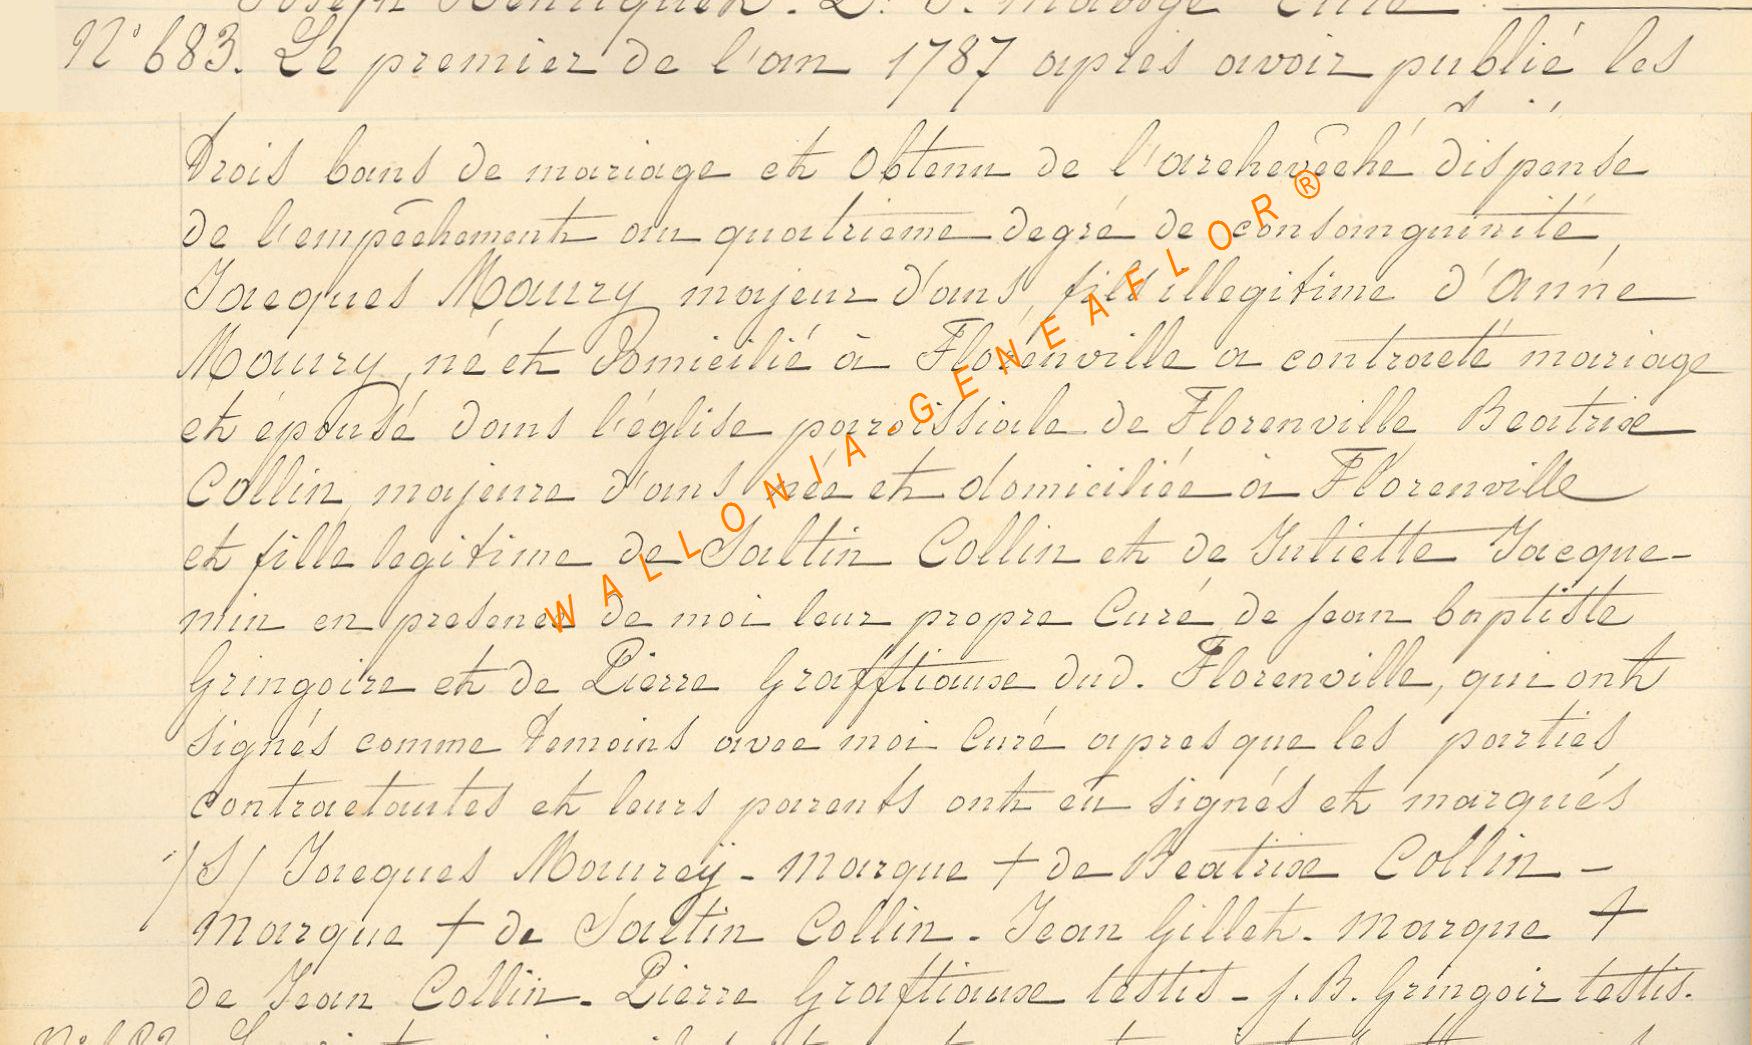 Joseph Henriquet. L. J. Curé.
N° 683. Le premier de l'an 1787 après avoir publié les
trois bans de mariage et obtenu de l'archevêché dispense
de l'empêchement au quatrieme degré de consanguinité,
Jacques Maury majeur d'ans, fils illegitime d'Anne
Maury, né et domicilié à Florenville a contracté mariage
et épousé dans l'église paroissiale de Florenville Beatrix
Collin, majeure d'ans née et domiciliée à Florenville
et fille legitime de Saltin Collin et de Juliette Jacque-
min en presence de moi leur propre Curé de jean baptiste
Gringoire et de Pierre Grafftiaux dud. Florenville, qui ont
signés comme temoins avec moi Curé apres que les parties
contractantes et leurs parents ont eu signés et marqués
/S/ Jacques Maureÿ - Marque + de Beatrix Collin -
Marque + de Saltin Collin - Jean Gillet - Marque +
de Jean Collin - Pierre Graftiaux testis - j. B. Gringoir testis.
WALLONIA-GENEAFLOR®